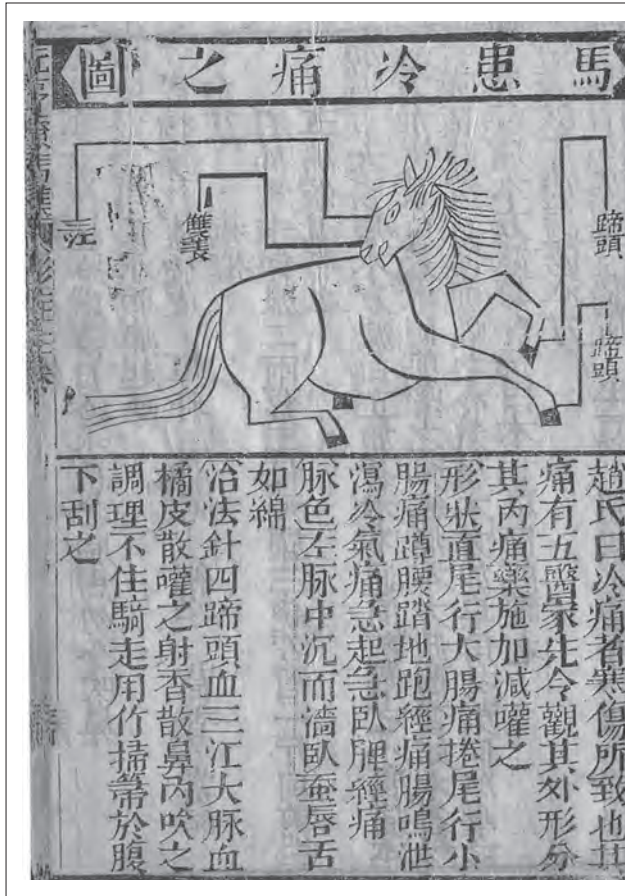 馬患冷痛之圖
蹄頭
蹄頭
三江
趙氏曰冷痛者寒傷所致也其
痛有五醫家先令觀其外形分
其内痛藥施加減嚾之
形狀直尾行大腸痛捲尾行小
腸痛蹲腰踏地跑經痛腸鳴泄
瀉冷氣痛急起急臥脾經痛
脉色左脉中沉而濇臥蚕唇舌
如綿
治法針四蹄頭血三江大脉血
橘皮散嚾之射香散鼻内吹之
調理不住騎走用竹掃箒於腹
下刮之